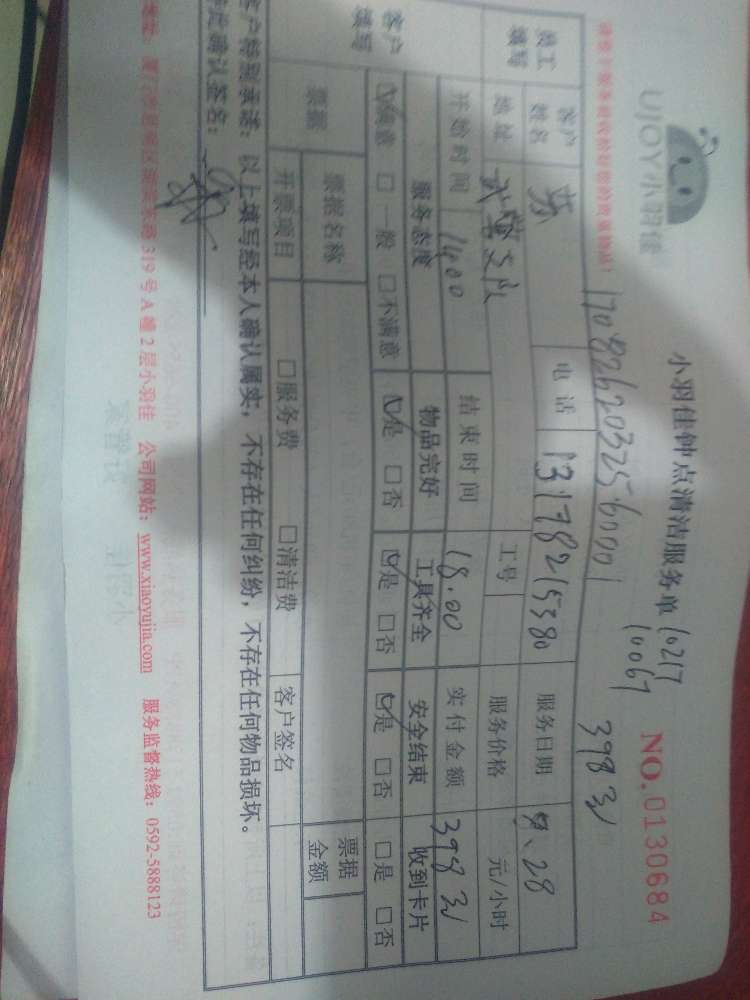 UJOY小羽佳
小羽佳钟点清洁服务单 10217
10067
NO.0130684
1708262032560001
398元
员工填写 客户姓名 苏 电话 13178215380 服务日期 8、28
地址 武警支队 工号 服务价格 元/小时
开始时间 14.00 结束时间 18.00 实付金额 398元
客户填写 服务态度 物品完好 工具齐全 安全结束 收到卡片
☑满意 □一般 □不满意 ☑是 □否 ☑是 □否 ☑是 □否 □是 □否
票据 票据名称 票据金额
开票项目 □服务费 □清洁费 客户签名
客户特别承诺：以上填写经本人确认属实，不存在任何纠纷，不存在任何物品损坏。
特此确认签名：
319号A幢2层小羽佳 公司网站：www.xiaoyujia.com 服务监督热线：0592-5888123